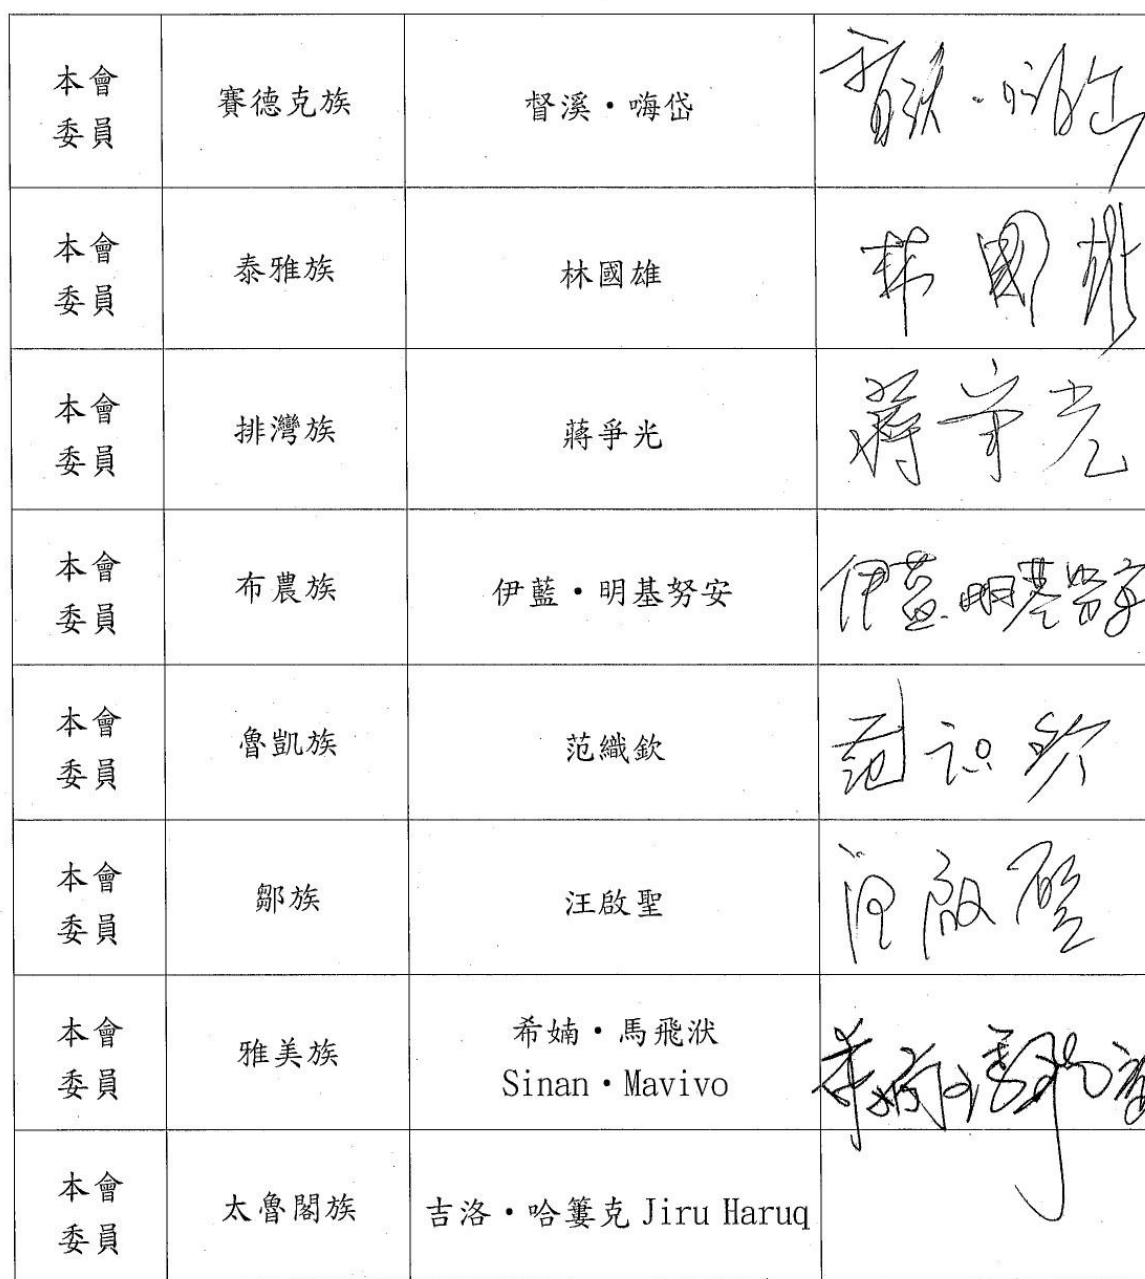 本會
委員
賽德克族
督溪・嗨岱
督溪・嗨岱
本會
委員
泰雅族
林國雄
林國雄
本會
委員
排灣族
蔣爭光
蔣爭光
本會
委員
布農族
伊藍・明基努安
伊藍・明基努安
本會
委員
魯凱族
范織欽
范织欽
本會
委員
鄒族
汪啟聖
汪啟聖
本會
委員
雅美族
希婻・馬飛洑
Sinan・Mavivo
本會
委員
太魯閣族
吉洛・哈簍克 Jiru Haruq